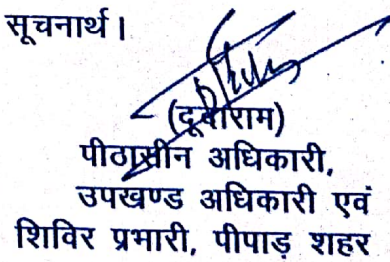 सूचनार्थ।
(दूदाराम)
पीठासीन अधिकारी,
उपखण्ड अधिकारी एवं
शिविर प्रभारी, पीपाड़ शहर